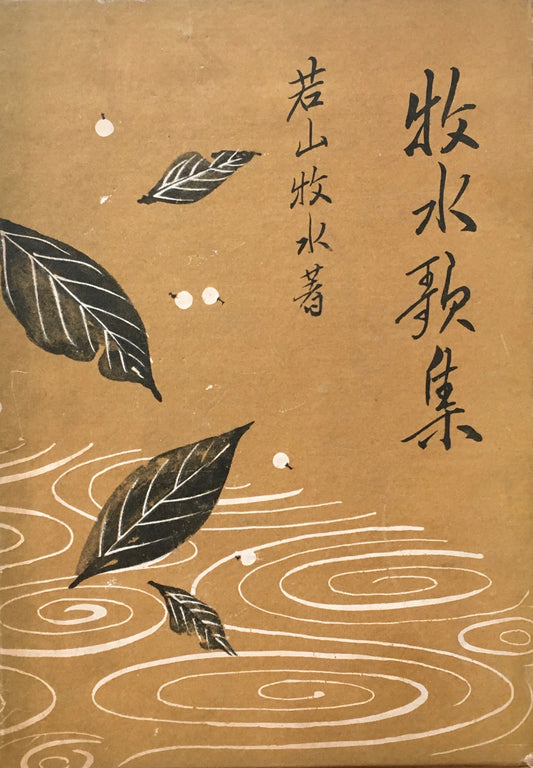 牧水歌集
若山牧水著